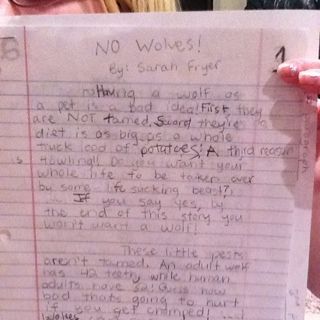 NO Wolves!
By: Sarah Fryer
1
Having a wolf as
a pet is a bad idea! First, they
are NOT tamed. Second they're
diet is as big as a whole
truck load of potatoes! A third reason
Howling!! Do you want your
whole life to be taken over
by some life sucking beast?!
If you say yes, by
the end of this story you
won't want a wolf!
These little pests
aren't tamed. An adult wolf
has 42 teeth while human
adults have 32! Guess how
bad thats going to hurt
if you get chomped!